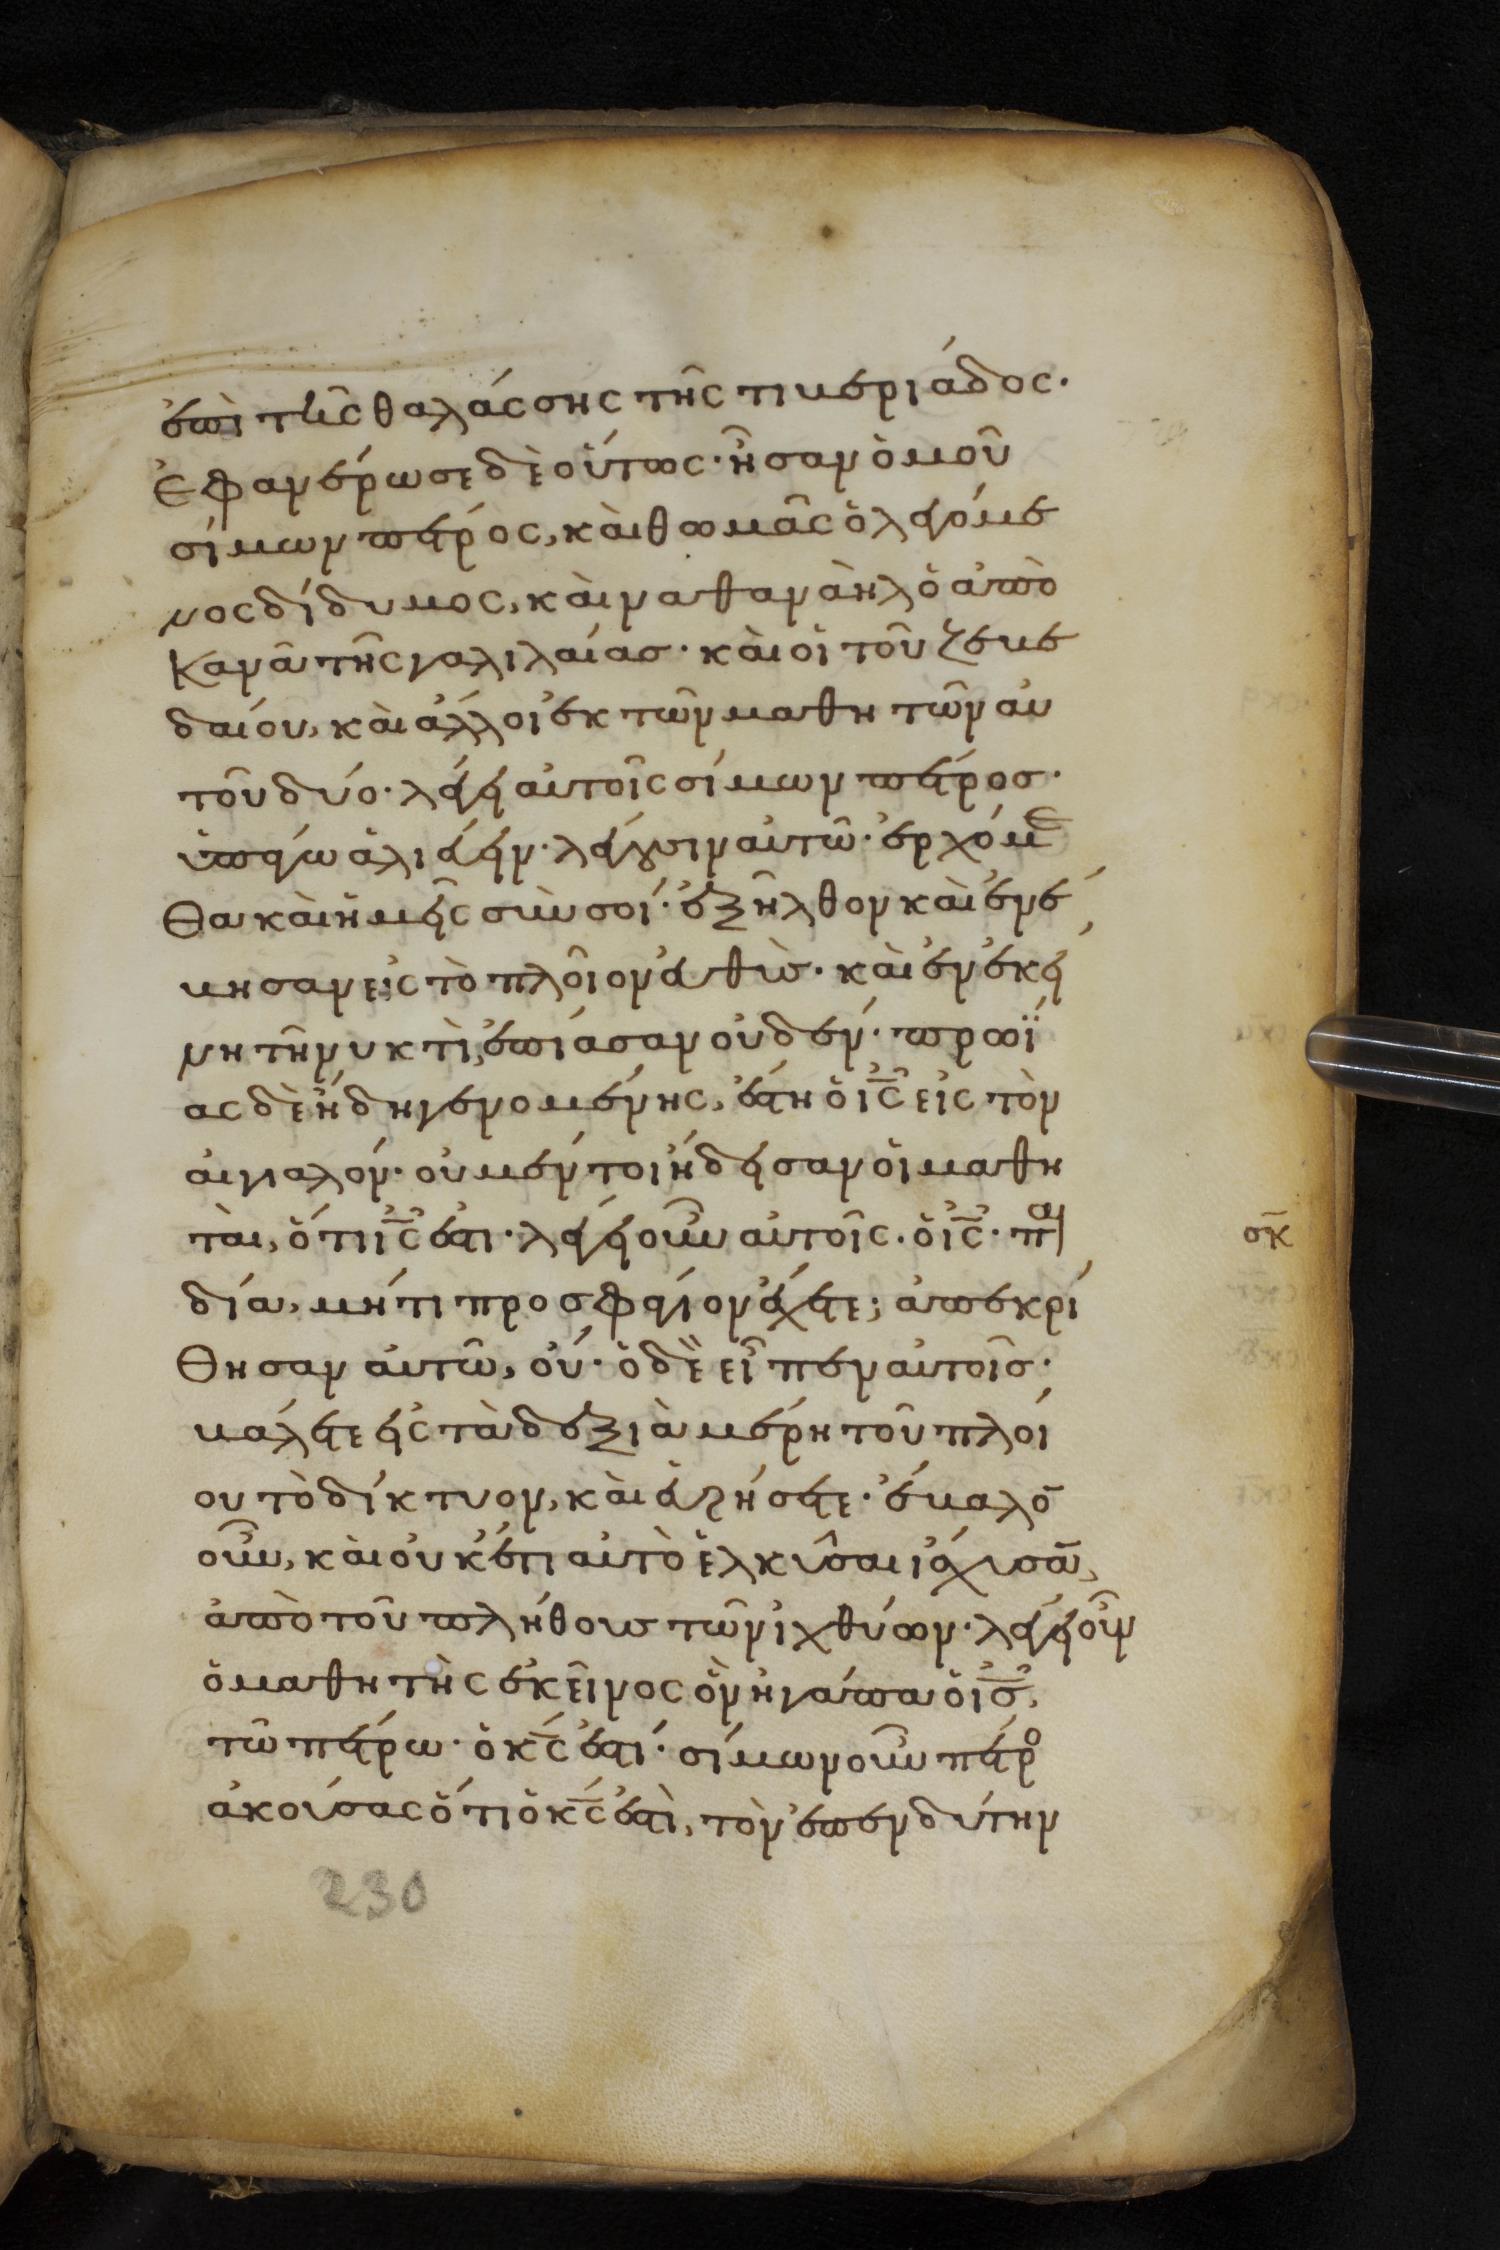 ἐπὶ τῆς θαλάσσης τῆς τιβεριάδος·
ἐφανέρωσε δὲ οὕτως· ἦσαν ὁμοῦ
σίμων πέτρος, καὶ θωμᾶς ὁ λεγόμε
νος δίδυμος, καὶ ναθαναὴλ ὁ ἀπὸ
κανᾶ τῆς γαλιλαίας· καὶ οἱ τοῦ ζεβε
δαίου, καὶ ἄλλοι ἐκ τῶν μαθητῶν αὐ
τοῦ δύο· λέγει αὐτοῖς σίμων πέτρος·
ὑπάγω ἁλιεύειν· λέγουσιν αὐτῶ· ἐρχόμε
θα καὶ ἡμεῖς σὺν σοί· ἐξῆλθον καὶ ἐνέ
βησαν εἰς τὸ πλοῖον εὐθὺς· καὶ ἐν ἐκεί
νη τῆ νυκτὶ, ἐπίασαν οὐδέν· πρωΐ
ας δὲ ἤδη γενομένης, ἔστη ὁ ις εἰς τὸν
αἰγιαλόν· οὐ μέντοι ἤδεισαν οἱ μαθη
ταὶ, ὅτι ις ἐστι· λέγει οὖν αὐτοῖς· ὁ ις· παι
σκ
δία, μήτι προσφάγιον ἔχετε; ἀπεκρί
θησαν αὐτῶ, οὔ· ὁ δὲ εἶπεν αὐτοῖς·
βάλετε εἰς τὰ δεξιὰ μέρη τοῦ πλοί
ου τὸ δίκτυον, καὶ εὑρήσετε· ἔβαλο̄
οὖν, καὶ οὐκέτι αὐτὸ ἑλκῦσαι ἴσχυσᾱ,
ἀπὸ τοῦ πλήθους τῶν ἰχθύων· λέγει οὖν
ὁ μαθητὴς ἐκεῖνος ὃν ἠγάπα ὁ ις,
τῶ πέτρω· ὁ κς ἐστί· σίμων οὖν πέτρο
ἀκούσας ὅτι ὁ κς ἐστὶ, τὸν ἐπενδύτην
230